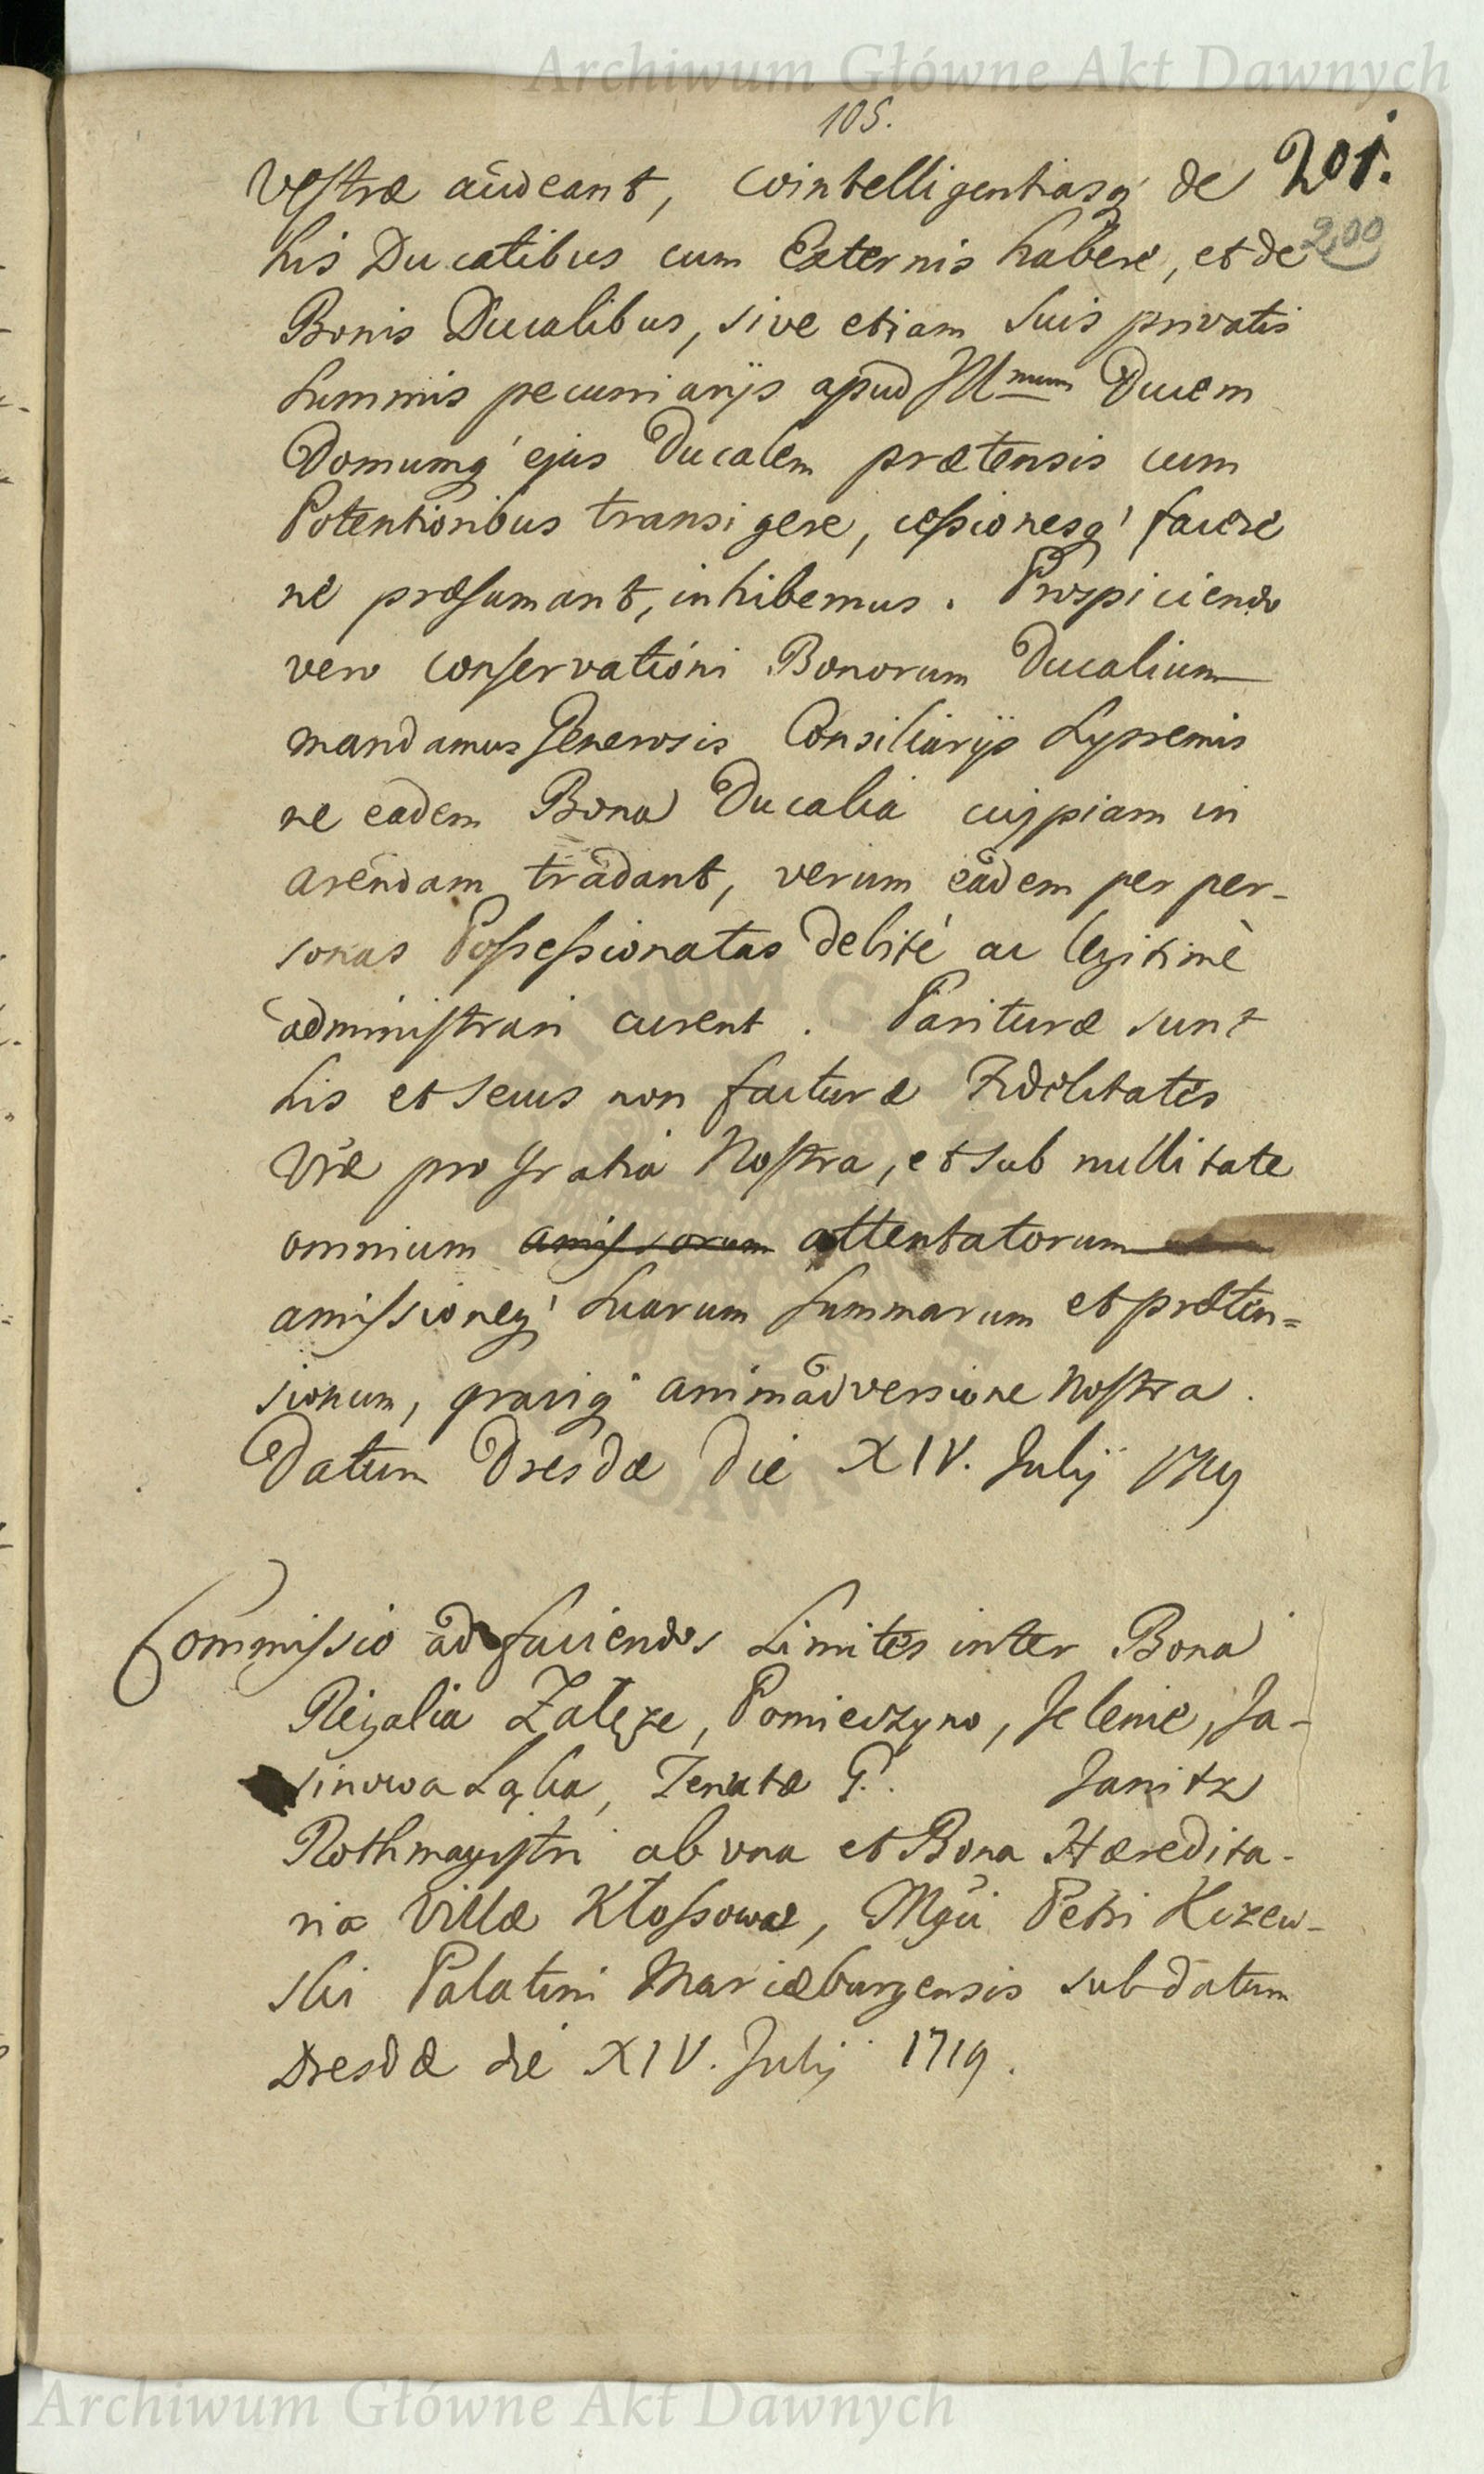 Archiwum Główne Akt Dawnych
105.
201.
200
Vestræ audeant, cointelligentiasq́ de
his Ducatibus cum Externis habere, et de
Bonis Ducalibus, sive etiam suis privatis
summis pecuniarijs apud Illmum Ducem
Domumq́ ejus Ducalem prætensis cum
Potentioribus transigere, cessionesq́ facere
ne præsumant, inhibemus. Prospiciendo
vero conservationi Bonorum Ducalium
mandamus Generosis Consiliarijs Supremis
ne eadem Bona Ducalia cuipiam in
arendam tradant, verum eadem per per-
sonas Possessionatas debitè ac legitimè
administrari curent. Parituræ sunt
his et secus non facturæ Fidelitates
Vræ pro Gratia Nostra, et sub nullitate
omnium amissorum attentatorum
amissioneq́ suarum summarum et præten=
sionum, graviq́ animadversione Nostra.
Datum Dresdæ die XIV. Julij 1719
Commissio ad faciendos Limites inter Bona
Regalia Załęze, Pomieczyno, Jelenie, Ja-
sinowa Łąka, Tenutæ G. Janitz
Rothmagistri ab una et Bona Hæredita-
ria Villæ Kłossowæ, Mgci Petri Kczew-
ski Palatini Mariæburgensis sub datum
Dresdæ die XIV. Julij 1719.
ARCHIWUM GŁÓWNE AKT DAWNYCH
Archiwum Główne Akt Dawnych